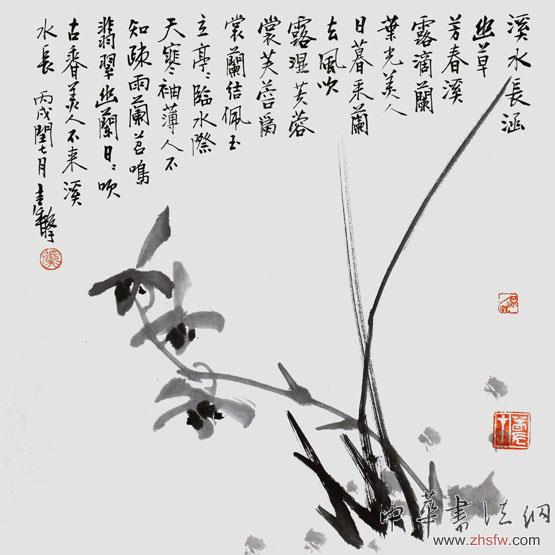 溪水長涵
幽草
芳春溪
露滴蘭
葉光美人
日暮采蘭
去風吹
露濕芙蓉
裳芙蓉為
裳蘭結佩玉
立亭〻臨水際
天寒袖薄人不
知陳雨蘭苕鳴
翡翠幽蘭日〻吹
古香美人不来溪
水長 丙戌閏七月
中華書法網
www.zhsfw.com